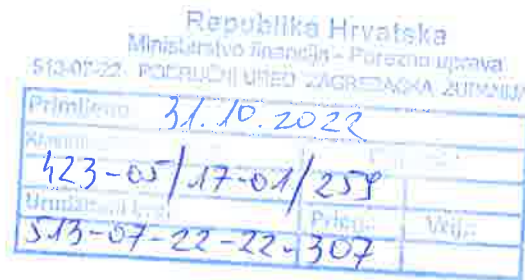 Republika Hrvatska
Ministarstvo financija - Porezna uprava
513-07-22 PODRUČNI URED ZAGREBAČKA ŽUPANIJA
Primljeno 31.10.2022
423-05/17-01/259
Prilog Vrij.
513-07-22-22-307